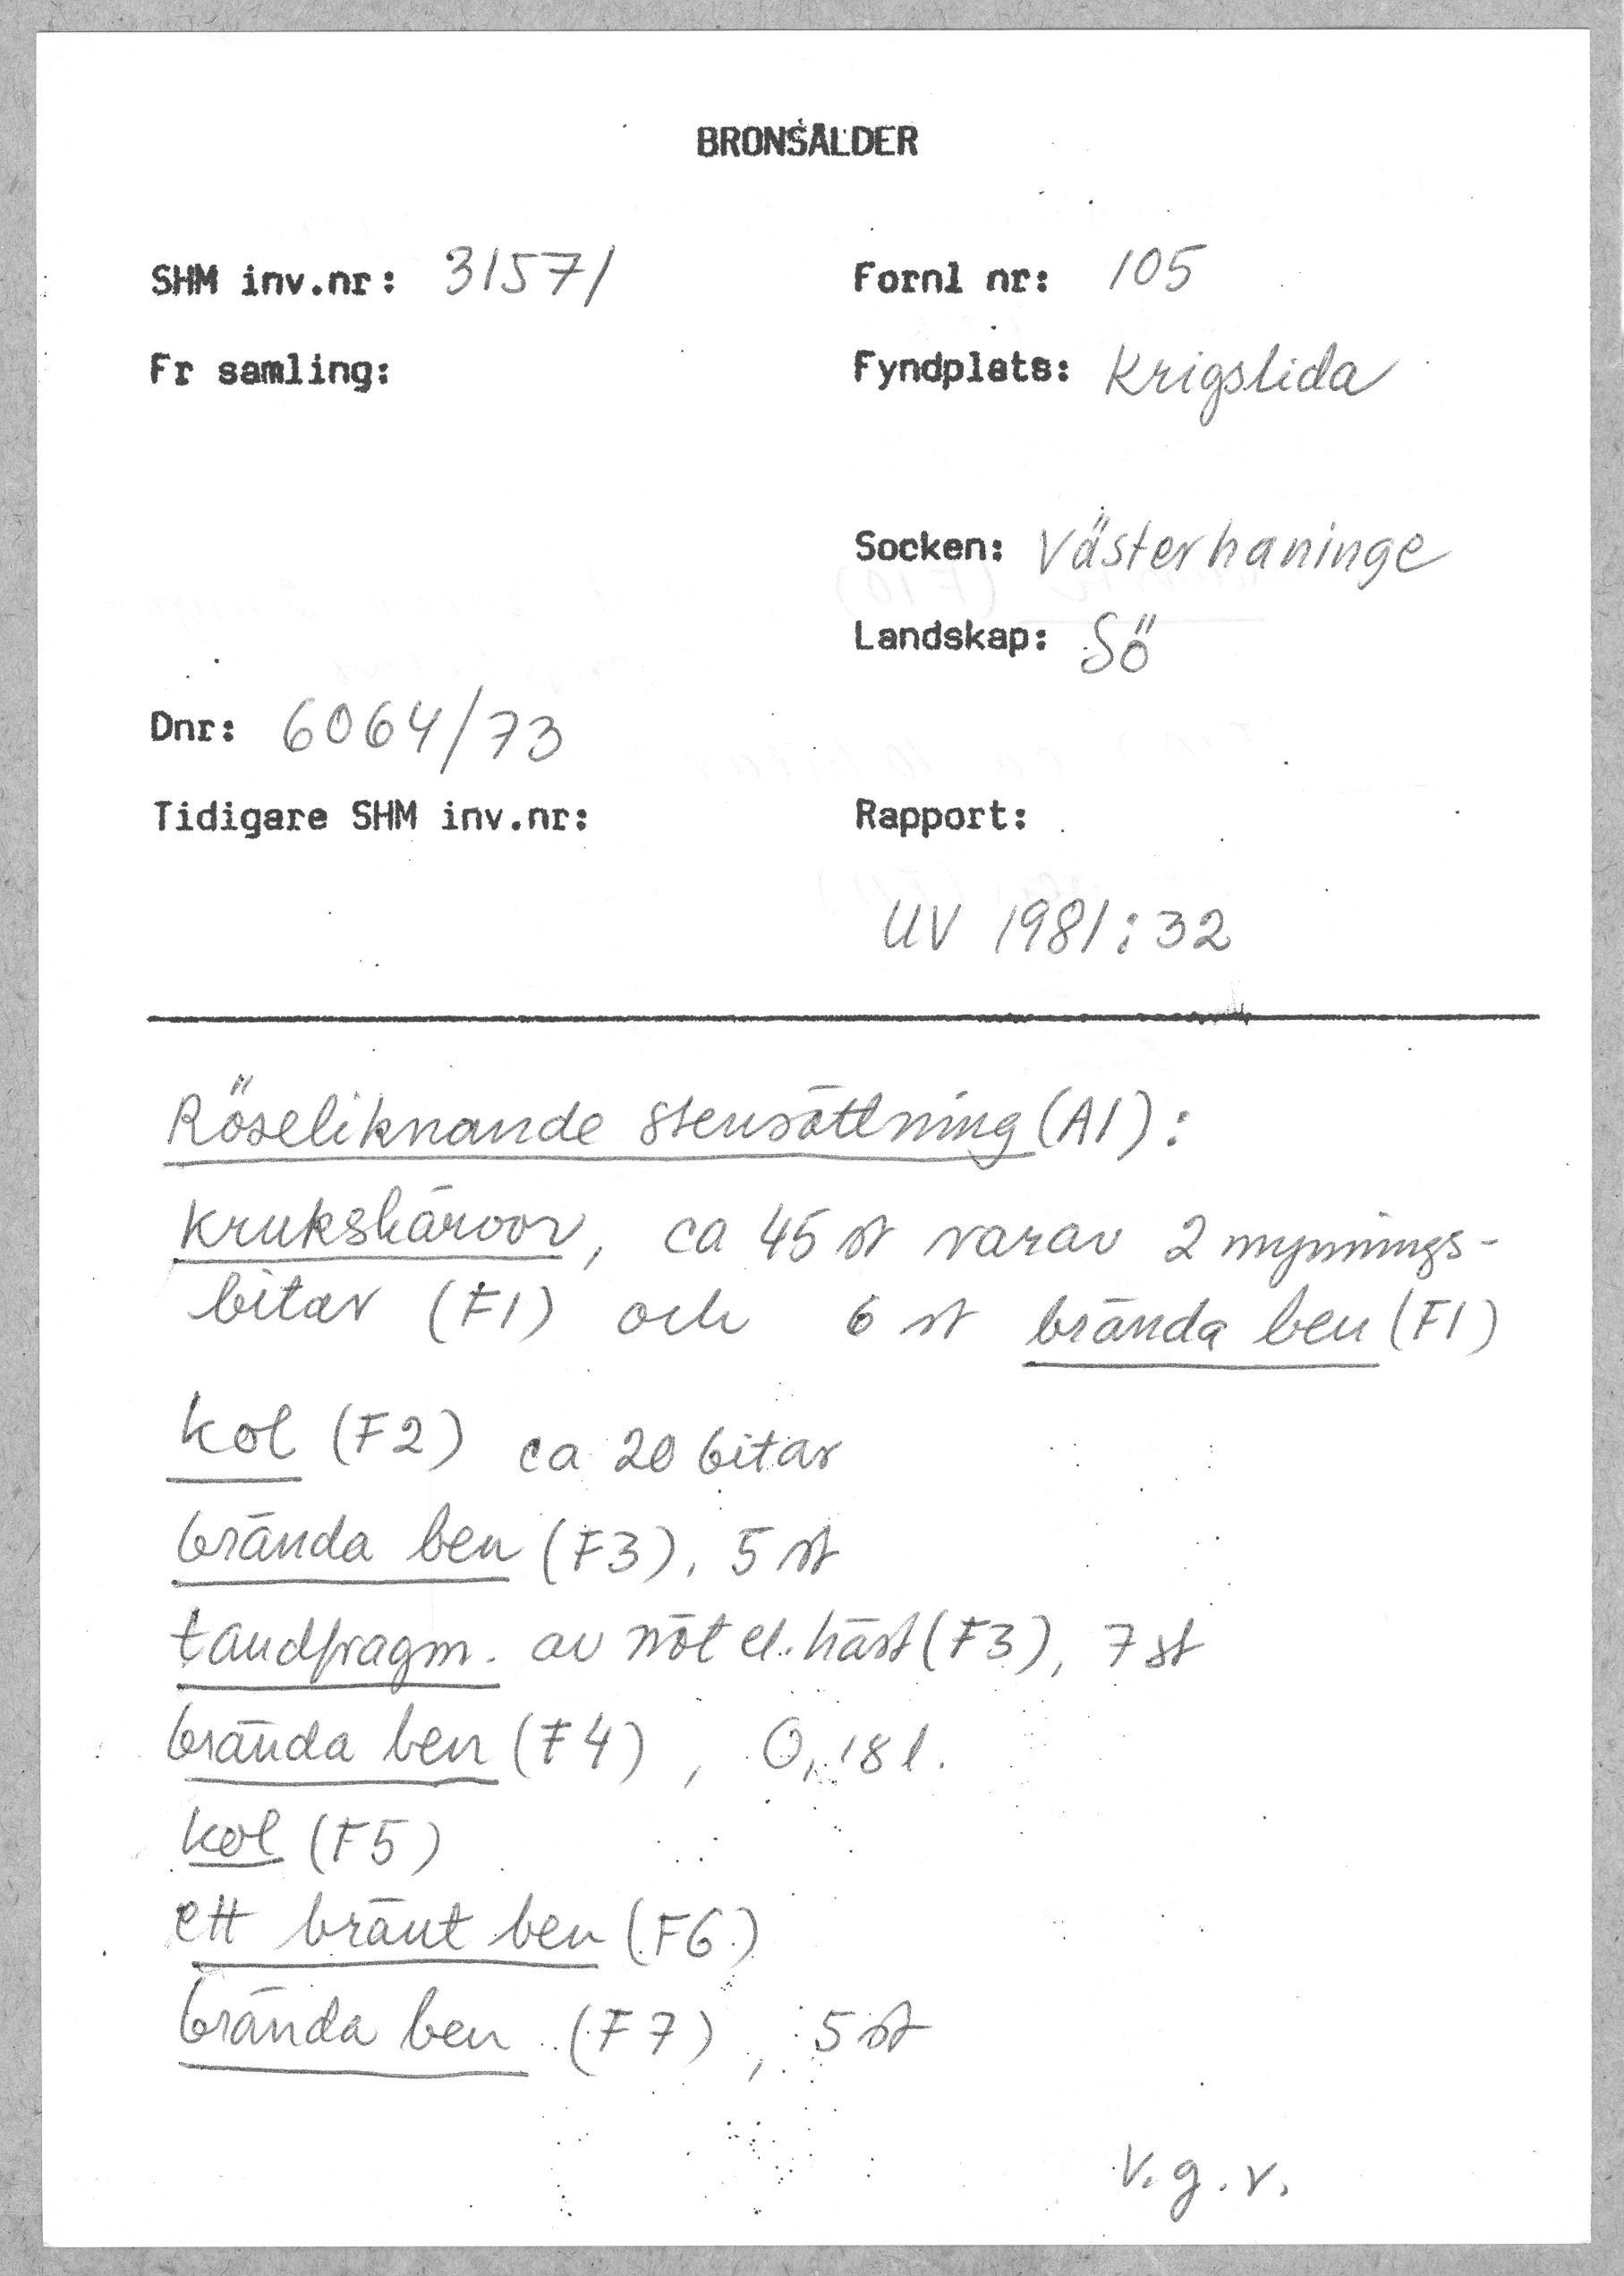 BRONSÅLDER
SHM inv.nr: 31571
Fornl nr: 105
Fr samling:
Fyndplats: Krigslida
Socken: Västerhaninge
Landskap: Sö
Dnr: 6064/73
Tidigare SHM inv.nr:
Rapport:
UV 1981:32
Röseliknande stensättning (A1):
Krukskärvor, ca 45 st varav 2 mynnings-
bitar (F1) och 6 st brända ben (F1)
kol (F2) ca 20 bitar
brända ben (F3), 5 st
tandfragm. av nöt el. häst (F3), 7 st
brända ben (F4), 0,18 l.
kol (F5)
ett bränt ben (F6)
brända ben (F7), 5 st
v.g.v.